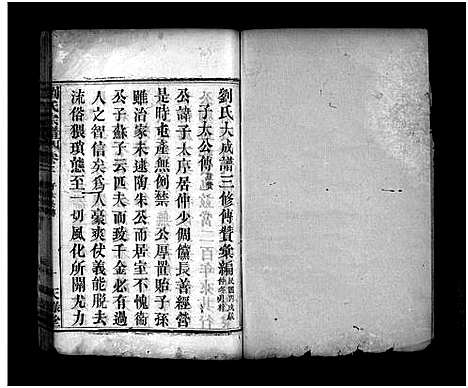 劉氏大成譜三修傳贊彙編
子太公傳
公諱子太序居仲少倜儻長善經營
是時重產無例禁公厚置貽子孫
雖治家未逮陶朱公而居室不愧衞
公子蘇子云匹夫而致千金必有過
人之智信矣爲人豪爽仗義能脫去
流俗猥瑣態至一切風化所關尤力